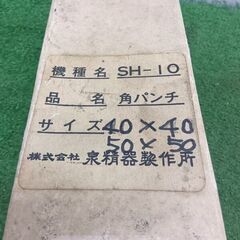 機種名 SH-10
品名 角パンチ
サイズ 40×40
50×50
株式会社 泉精器製作所